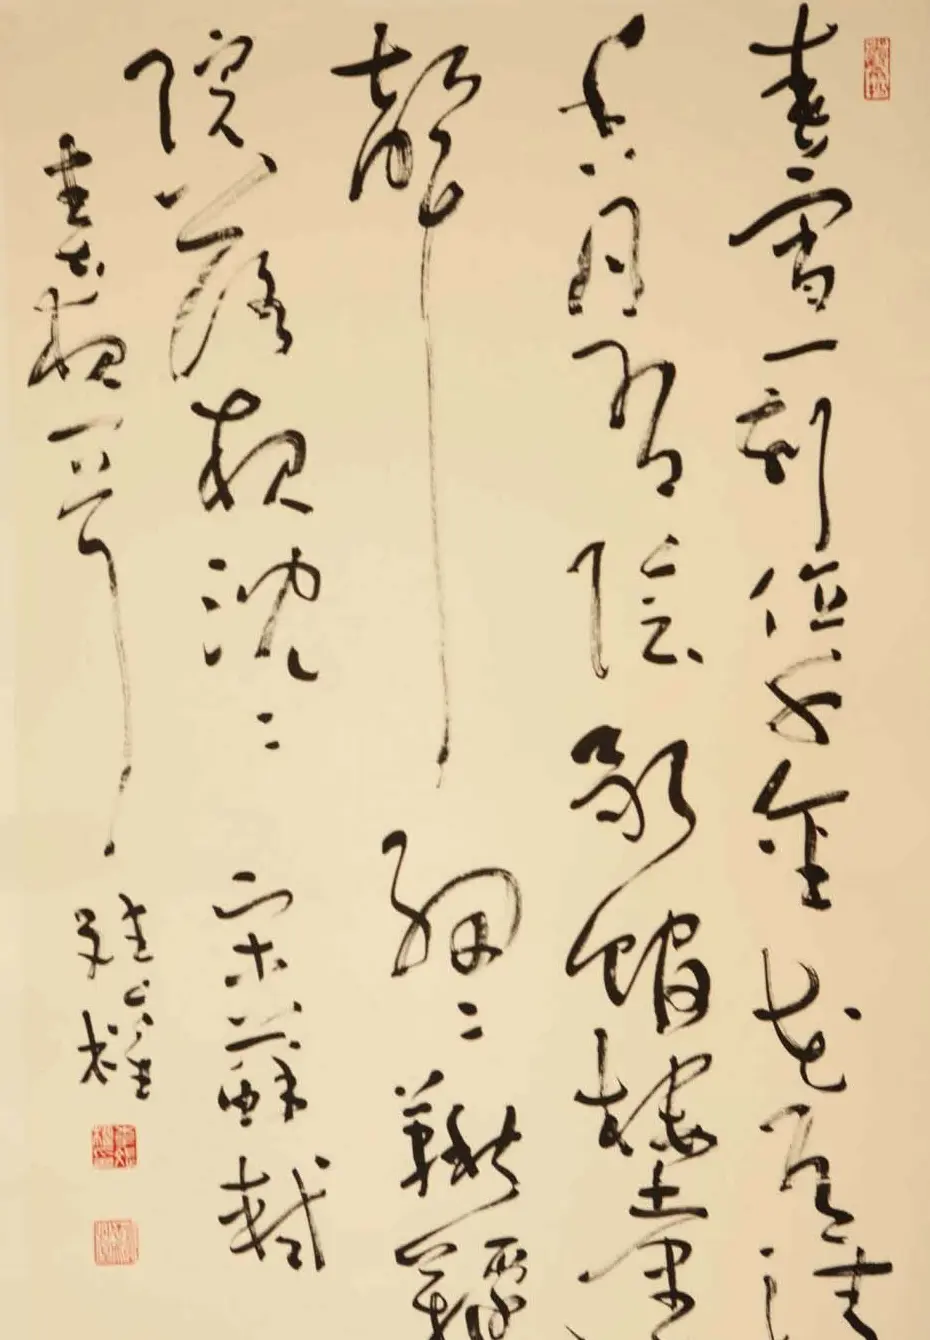 春宵一刻值千金花有清
香月有陰歌館樓臺
聲細〻鞦韆
院落夜沈〻宋蘇軾
夜一首